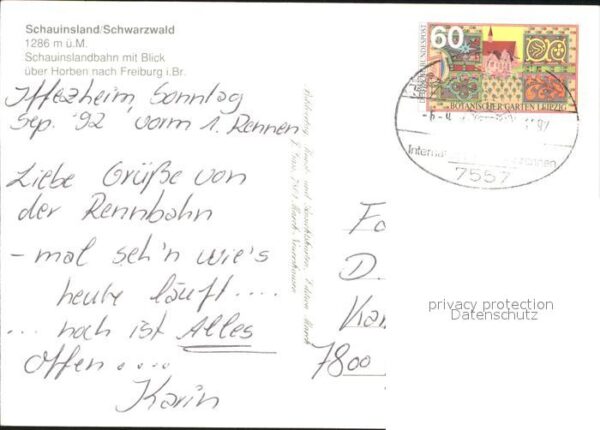 Schauinsland/Schwarzwald
1286 m ü.M.
Schauinslandbahn mit Blick
über Horben nach Freiburg i.Br.
Iffezheim, Sonntag
Sep. '92 vorm 1. Rennen
Liebe Grüße von
der Rennbahn
- mal seh'n wie's
heute läuft....
... noch ist Alles
offen....
Karin
60
DEUTSCHE BUNDESPOST
BOTANISCHER GARTEN LEIPZIG
Internat
7557
D.
7800
privacy protection
Datenschutz